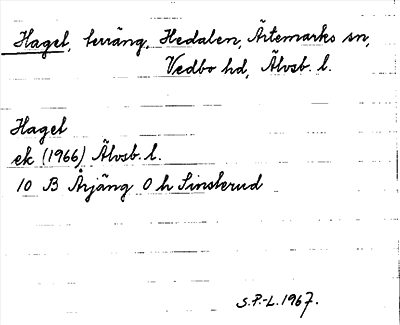 Haget, terräng, Hedalen, Ärtemarks sn,
Vedbo hd, Älvsb. l.
Haget
ek (1966) Älvsb. l.
10 B Årjäng 0 h Sinskerud
S.P.-L. 1967.